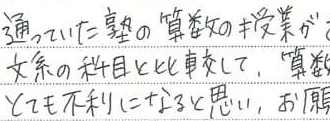 通っていた塾の算数の授業が
文系の科目とくらべ較して、算数
とても不利になると思い、お願